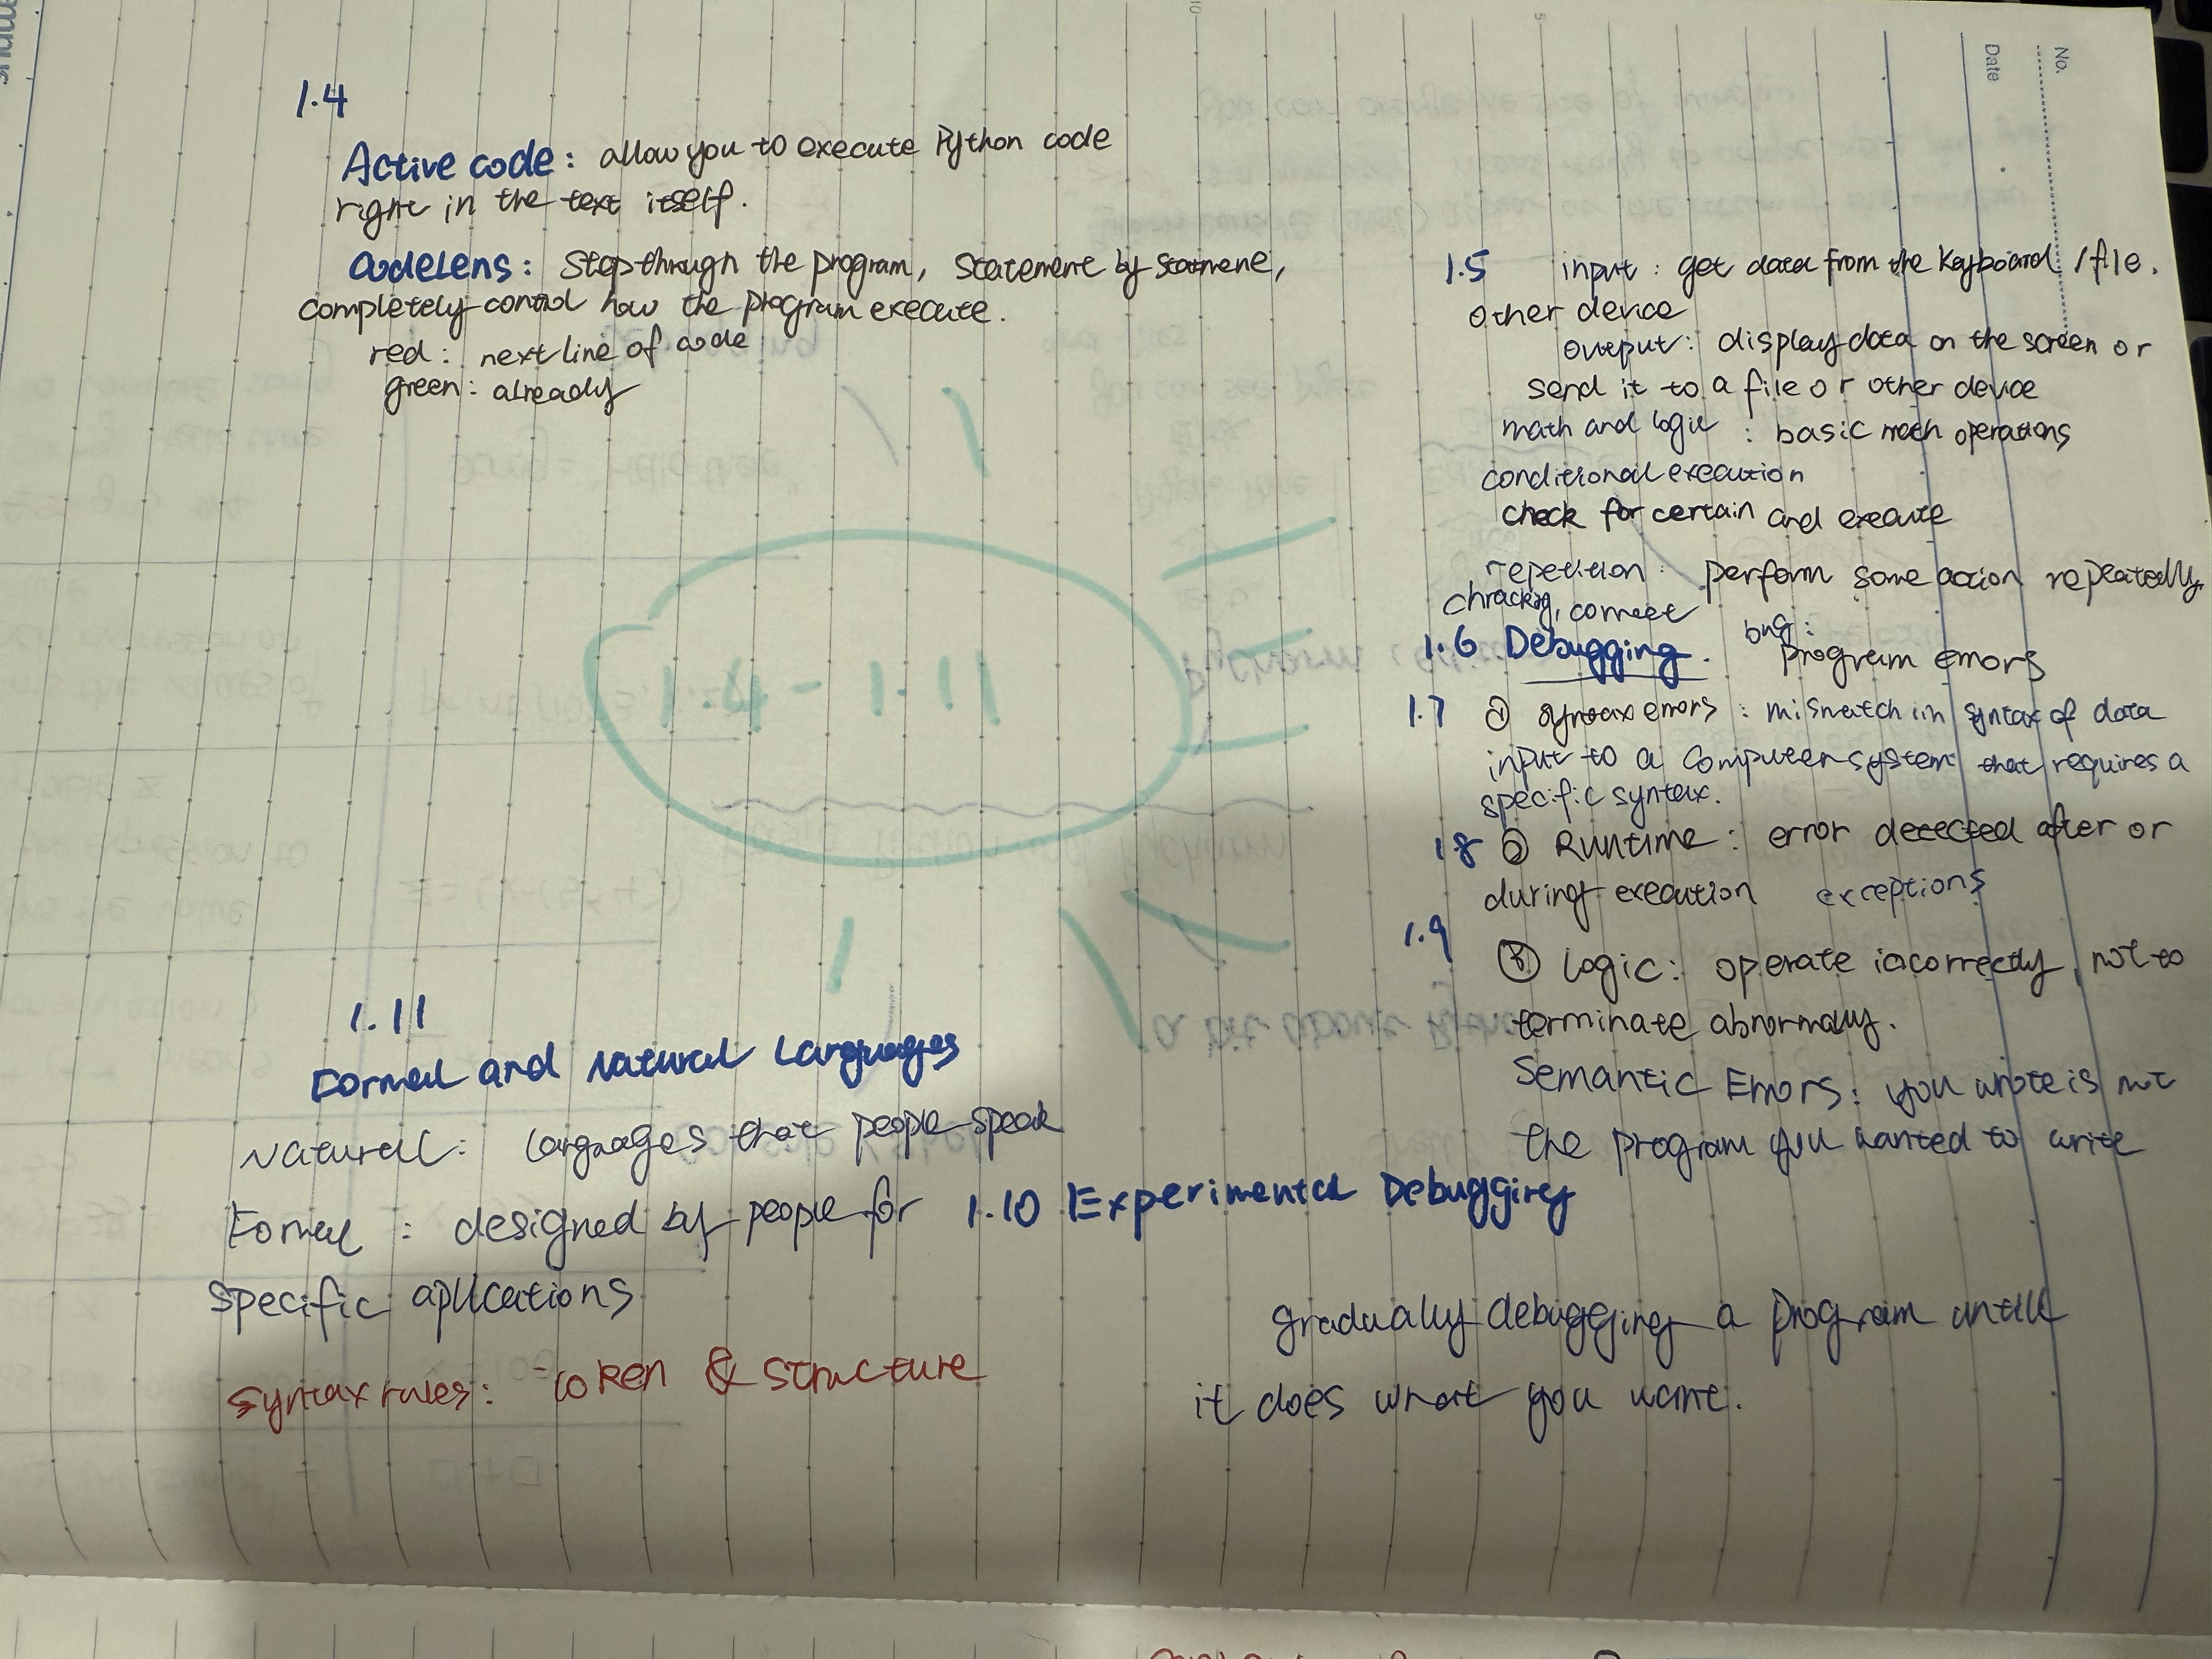 No.
Date
1.4
Active code: allow you to execute Python code
right in the text itself.
codeLens: Step through the program, Statement by statement,
completely control how the program execute.
red: next line of code
green: already
1.4 - 1.11
1.5 input: get data from the Keyboard /file.
other device
output: display data on the screen or
send it to a file or other device
math and logic : basic math operations
conditional execution
check for certain and execute
repetition: perform some action repeatedly.
correct
1.6 Debugging. bug:
program errors
1.7 ① syntax errors : mismatch in syntax of data
input to a computer system that requires a
specific syntax.
1.8 ② Runtime: error detected after or
during execution exceptions
1.9
③ Logic: operate incorrectly, not to
terminate abnormally.
Semantic Errors: you wrote is not
the program you wanted to write
1.10 Experimental Debugging
gradually debugging a program untill
it does what you want.
1.11
Formal and Natural Languages
Natural: languages that people speak
Formal : designed by people for
specific aplications
syntax rules: token & structure